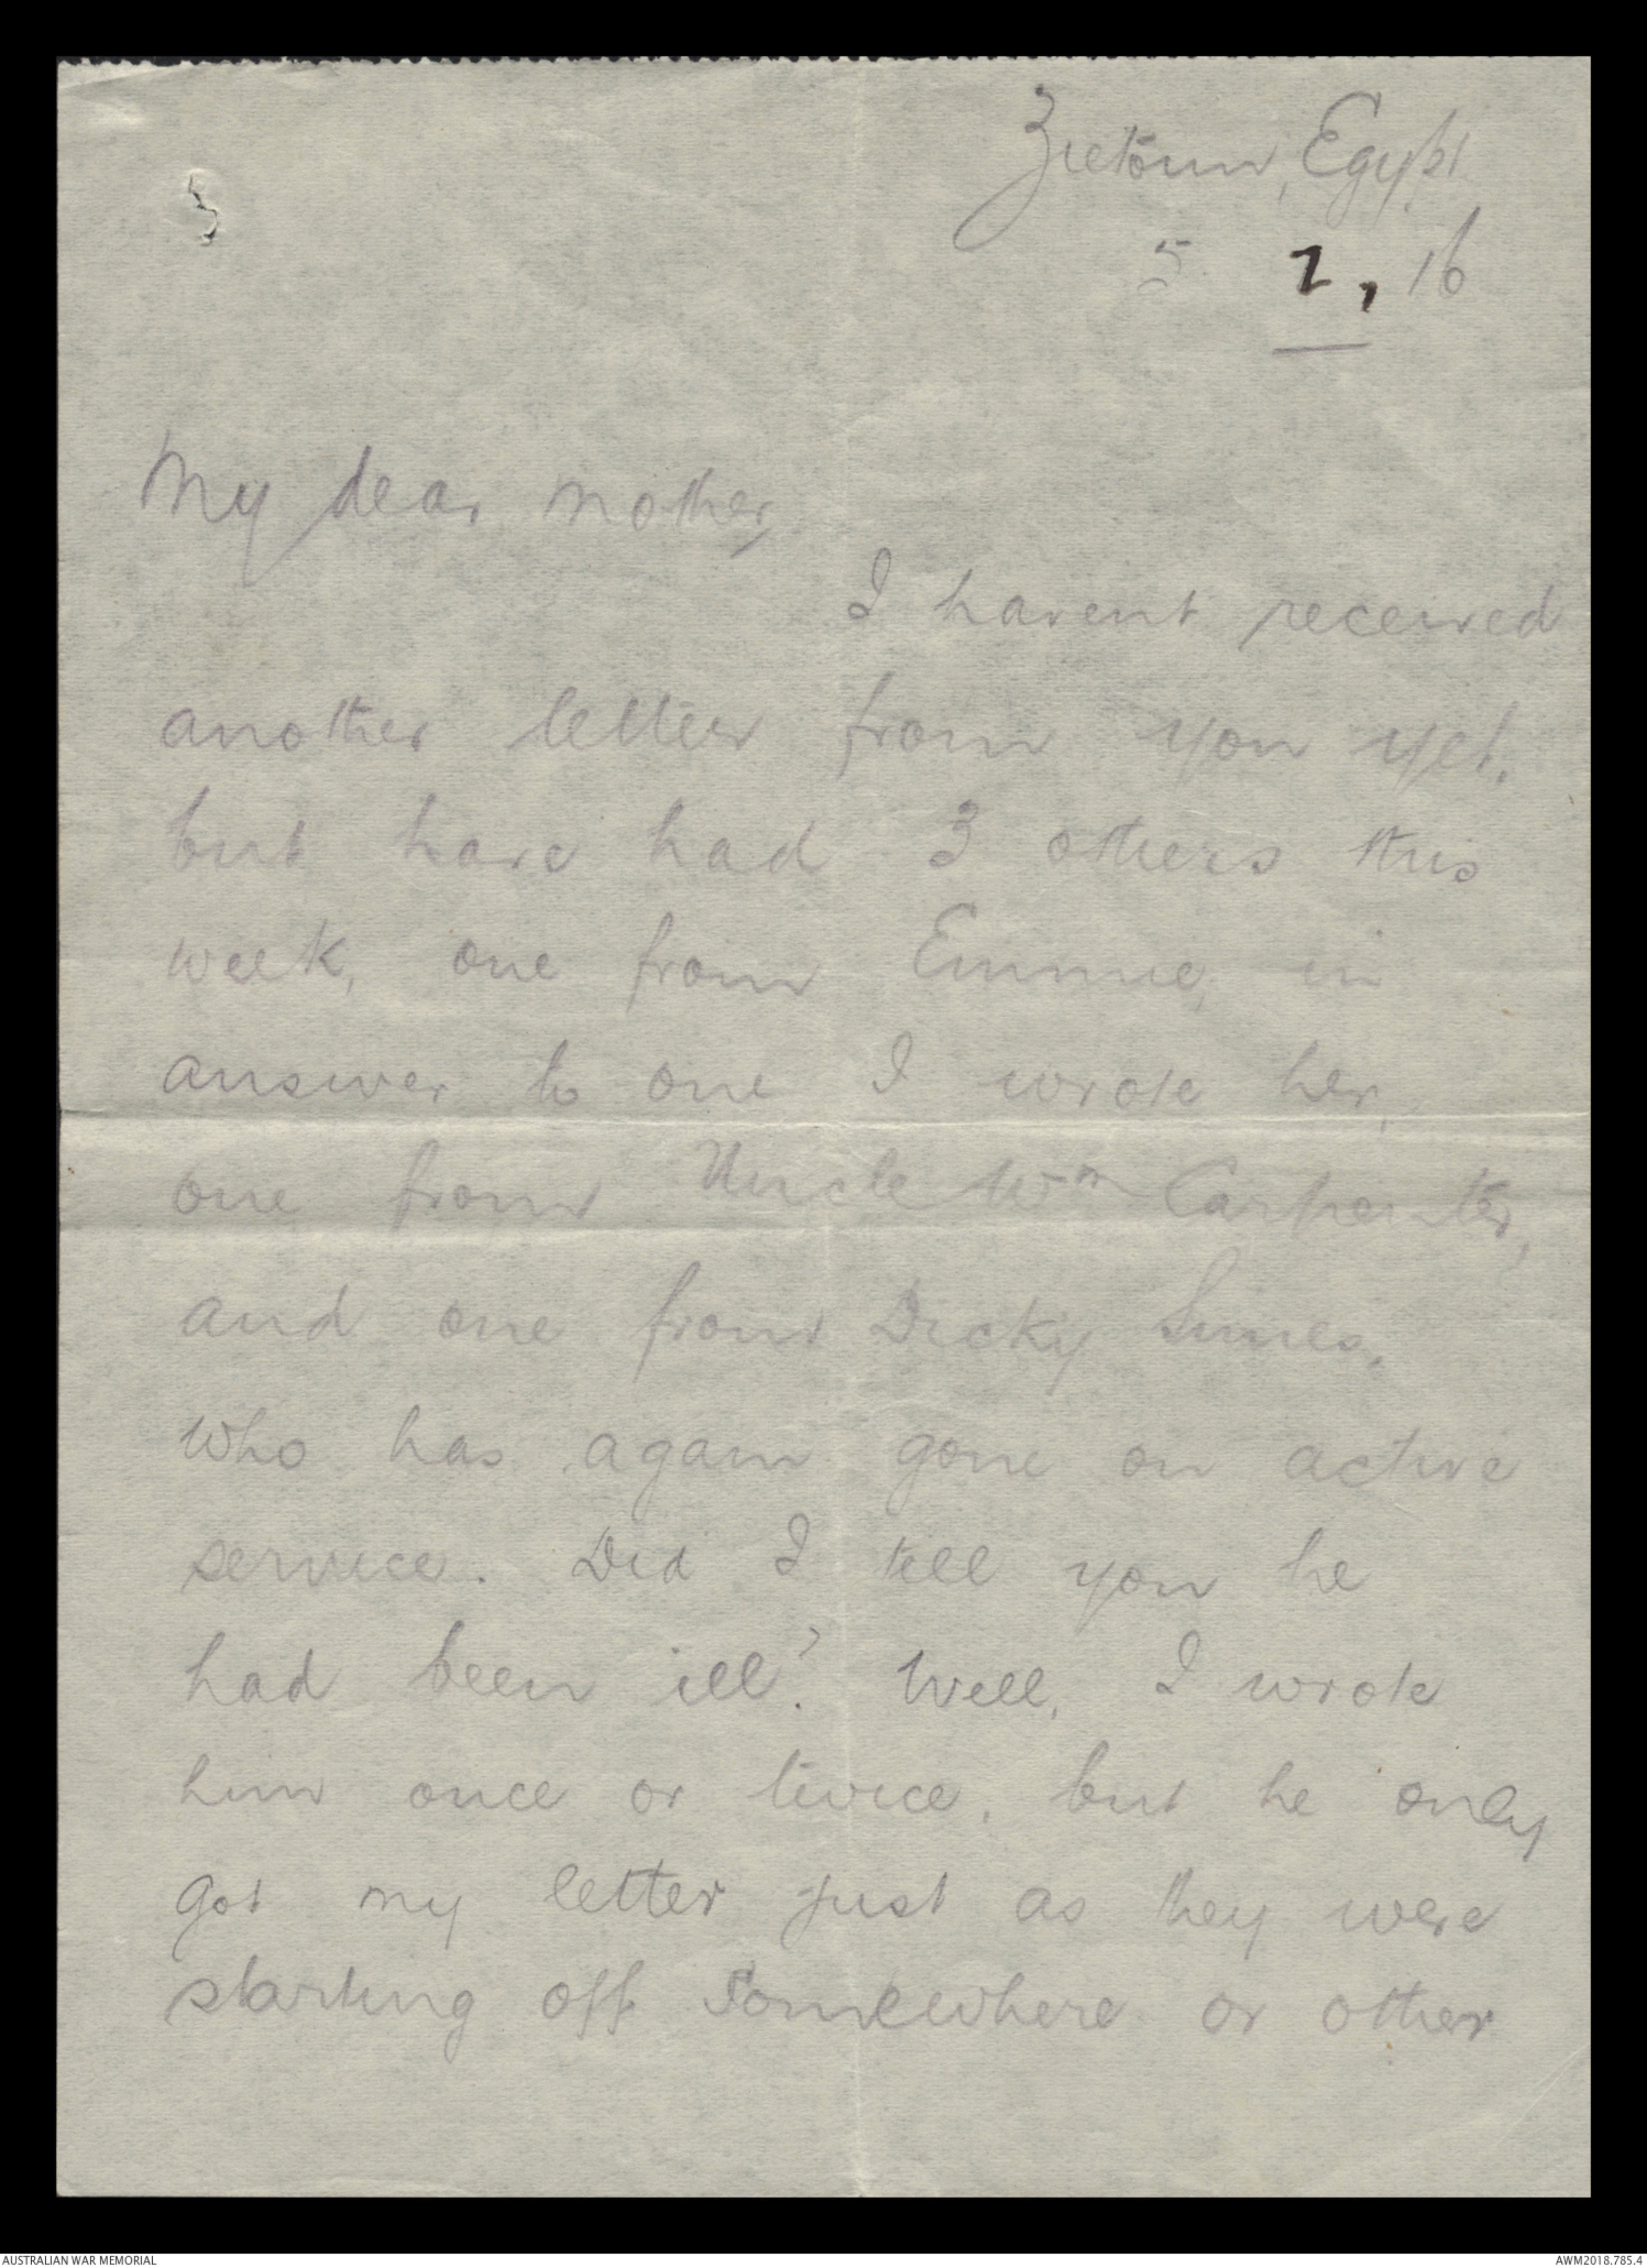 Zietoun, Egypt
5 2, 16
My dear mother,
I havent received
another letter from you yet,
but have had 3 others this
week, one from Emmie, in
answer to one I wrote her,
one from Uncle Wm Carpenter,
and one from Dicky Simes,
who has again gone on active
service. Did I tell you he
had been ill? Well, I wrote
him once or twice, but he only
got my letter just as they were
starting off somewhere or other
AUSTRALIAN WAR MEMORIAL
AWM2018.785.4